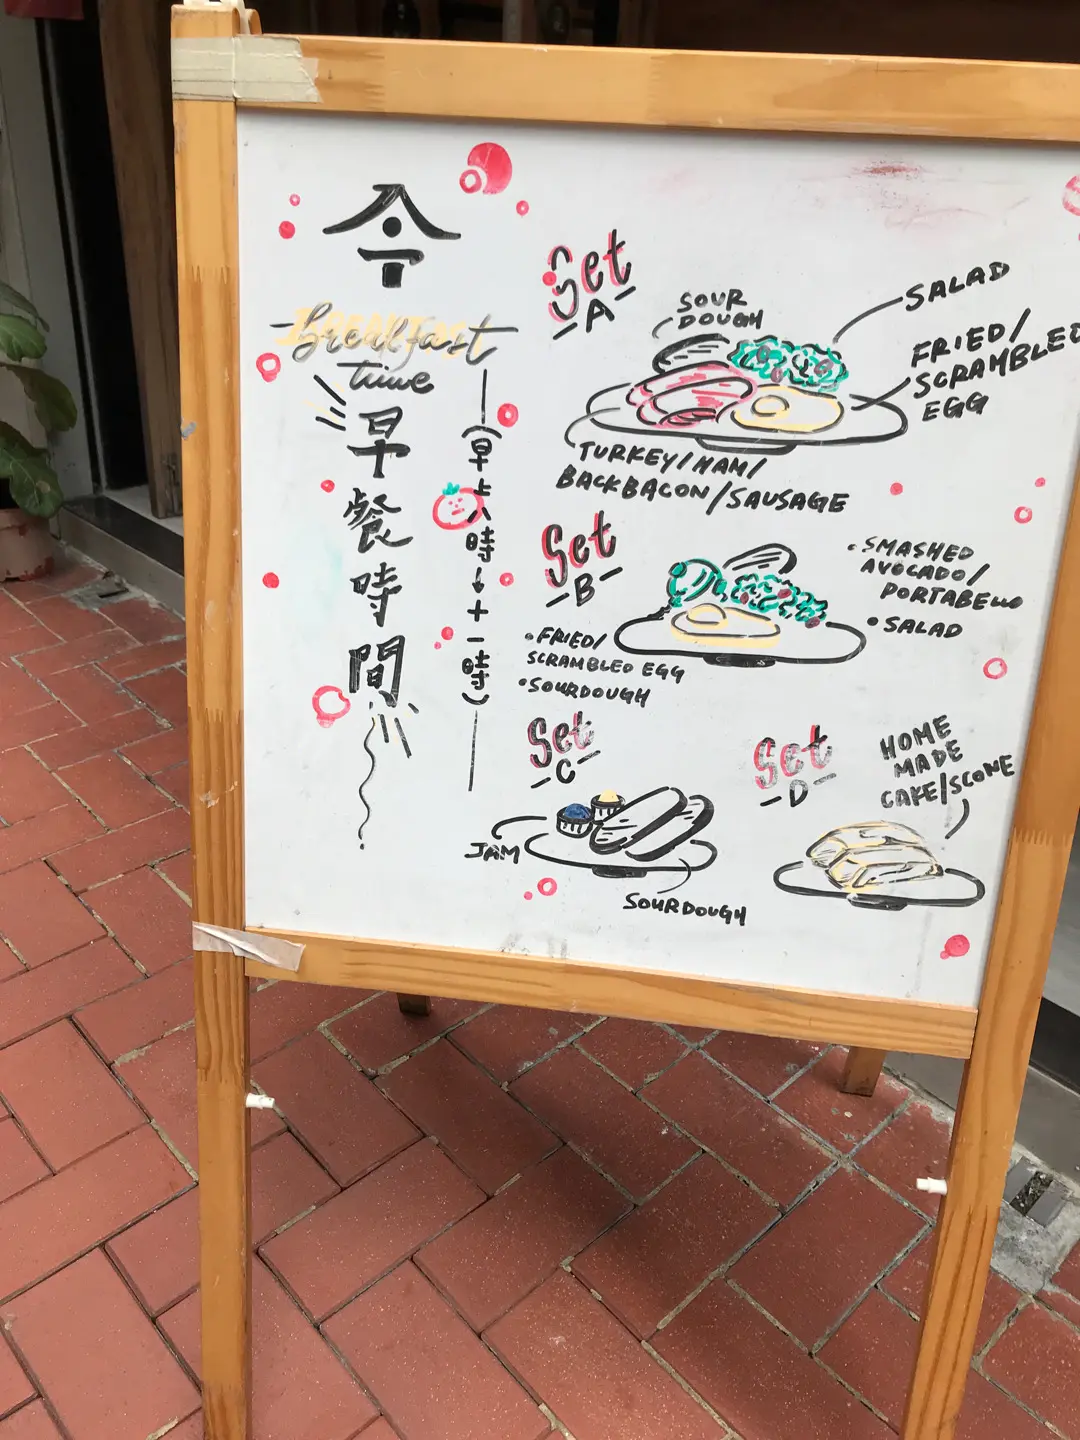 Breakfast
time
早餐時間
(早上八時→十一時)
Set
A
SOUR
DOUGH
SALAD
FRIED/
SCRAMBLED
EGG
TURKEY/HAM/
BACKBACON/SAUSAGE
Set
B
• SMASHED
AVOCADO/
PORTABELLO
• SALAD
• FRIED/
SCRAMBLED EGG
• SOURDOUGH
Set
C
JAM
SOURDOUGH
Set
D
HOME
MADE
CAKE/SCONE